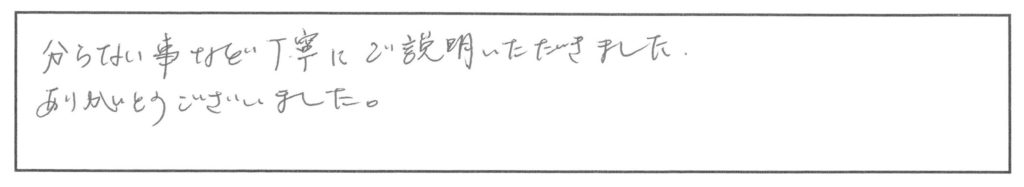 分らない事など丁寧にご説明いただきました.
ありがとうございました。